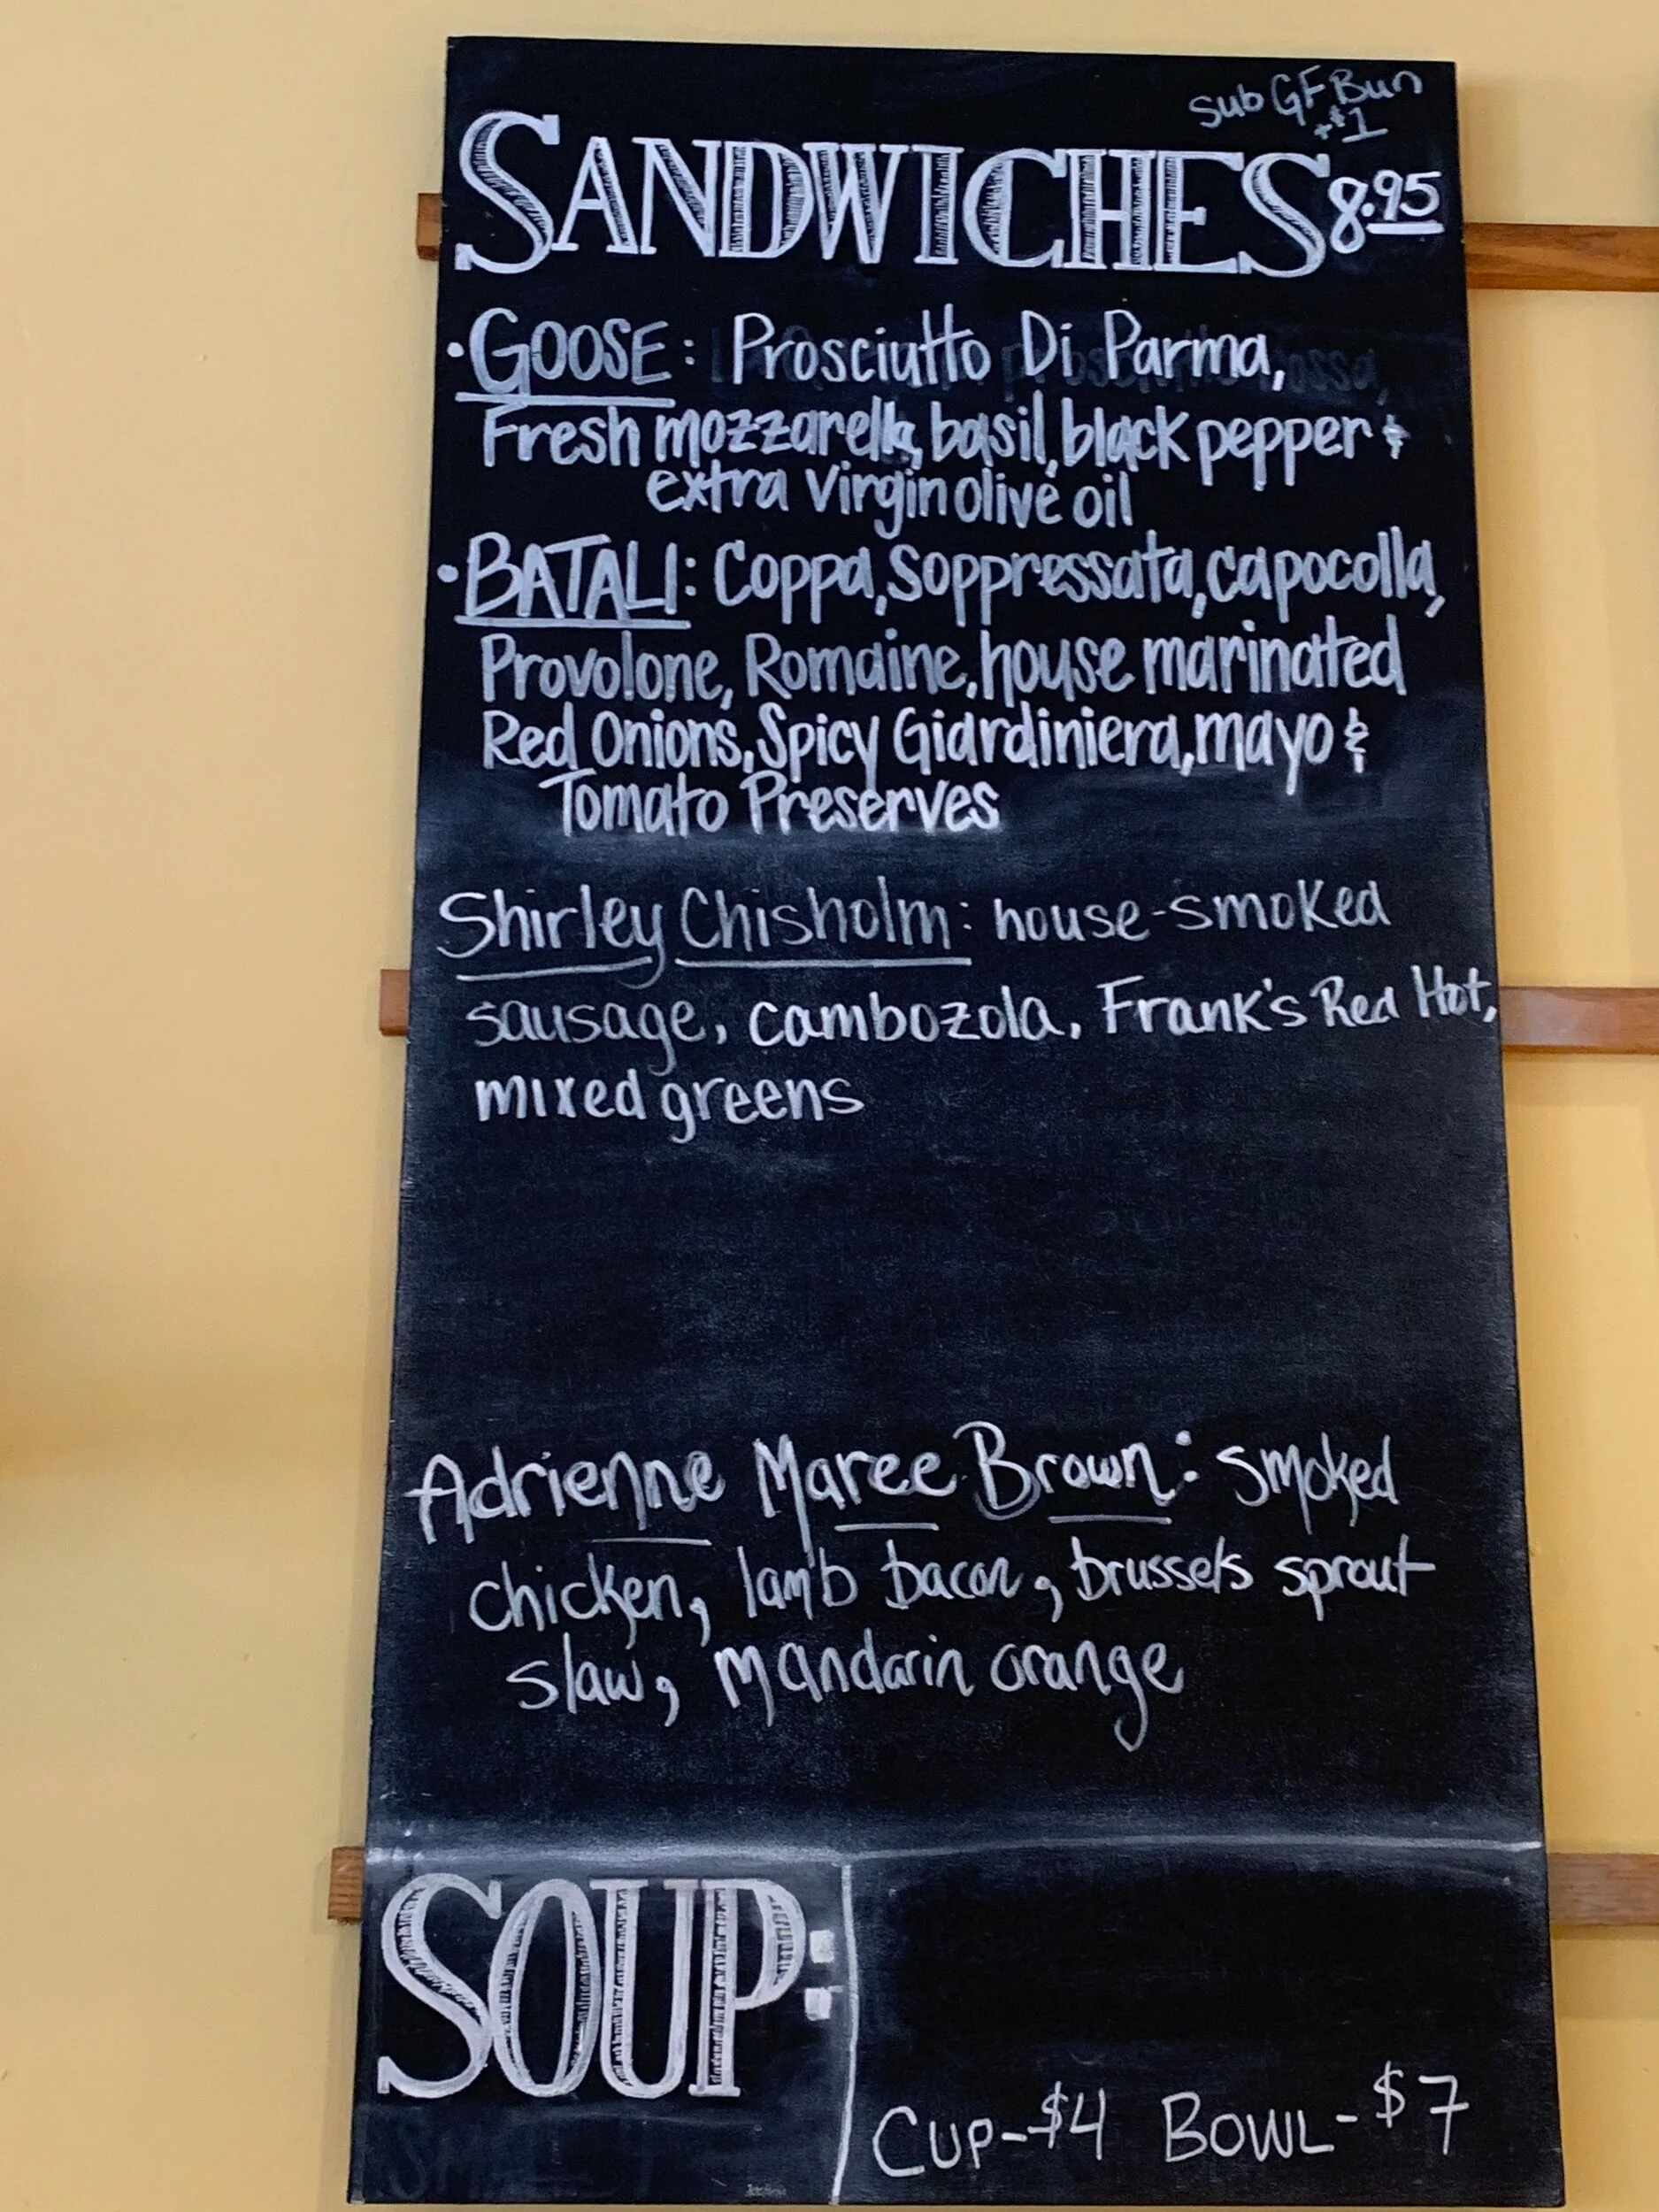 Sub GF Bun
+$1
SANDWICHES 8.95
• GOOSE: Prosciutto Di Parma,
Fresh mozzarella, basil, black pepper &
extra virgin olive oil
• BATALI: Coppa, Soppressata, capocolla,
Provolone, Romaine, house marinated
Red Onions, Spicy Giardiniera, mayo &
Tomato Preserves
Shirley Chisholm: house-smoked
sausage, cambozola, Frank's Red Hot,
mixed greens
Adrienne Maree Brown: smoked
chicken, lamb bacon, brussels sprout
slaw, mandarin orange
SOUP:
CUP-$4 BOWL-$7